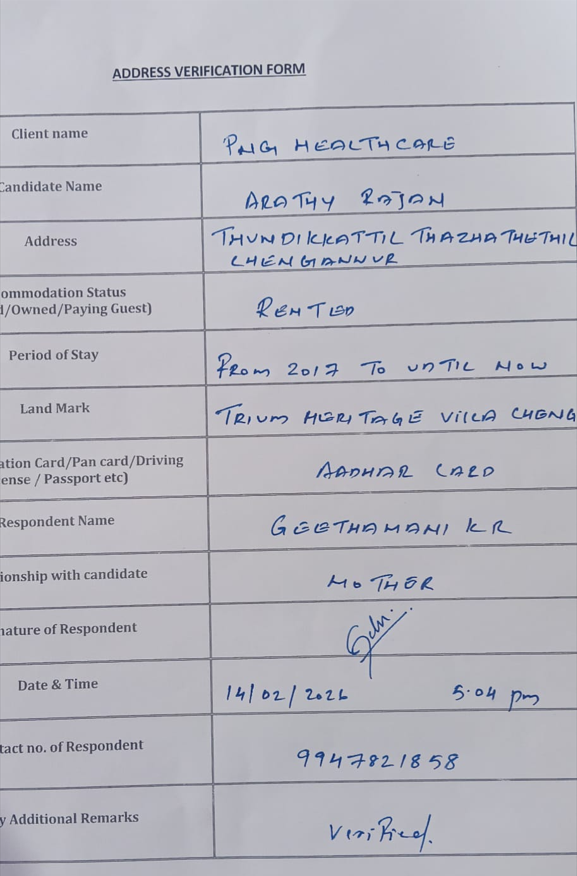 ADDRESS VERIFICATION FORM
Client name PNG HEALTHCARE
Candidate Name ARATHY RAJAN
Address THUNDIKKATTIL THAZHATHETHIL
CHENGANNUR
ommodation Status RENTED
/Owned/Paying Guest)
Period of Stay FROM 2017 TO UNTIL NOW
Land Mark TRIUM HERITAGE VILLA CHENG
ation Card/Pan card/Driving AADHAR CARD
ense / Passport etc)
Respondent Name GEETHAMANI K R
ionship with candidate MOTHER
nature of Respondent
Date & Time 14/02/2026 5.04 pm
tact no. of Respondent 9947821858
y Additional Remarks Verified.